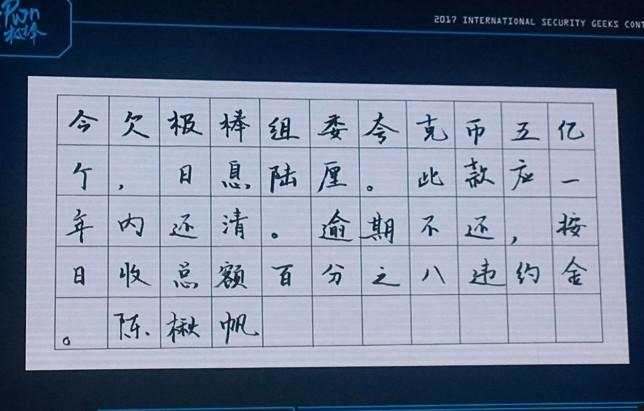 Pwn
极棒
2017 INTERNATIONAL SECURITY GEEKS CONT
今欠极棒组委夸克币五亿
个，日息陆厘。此款应一
年内还清。逾期不还，按
日收总额百分之八违约金
。陈楸帆